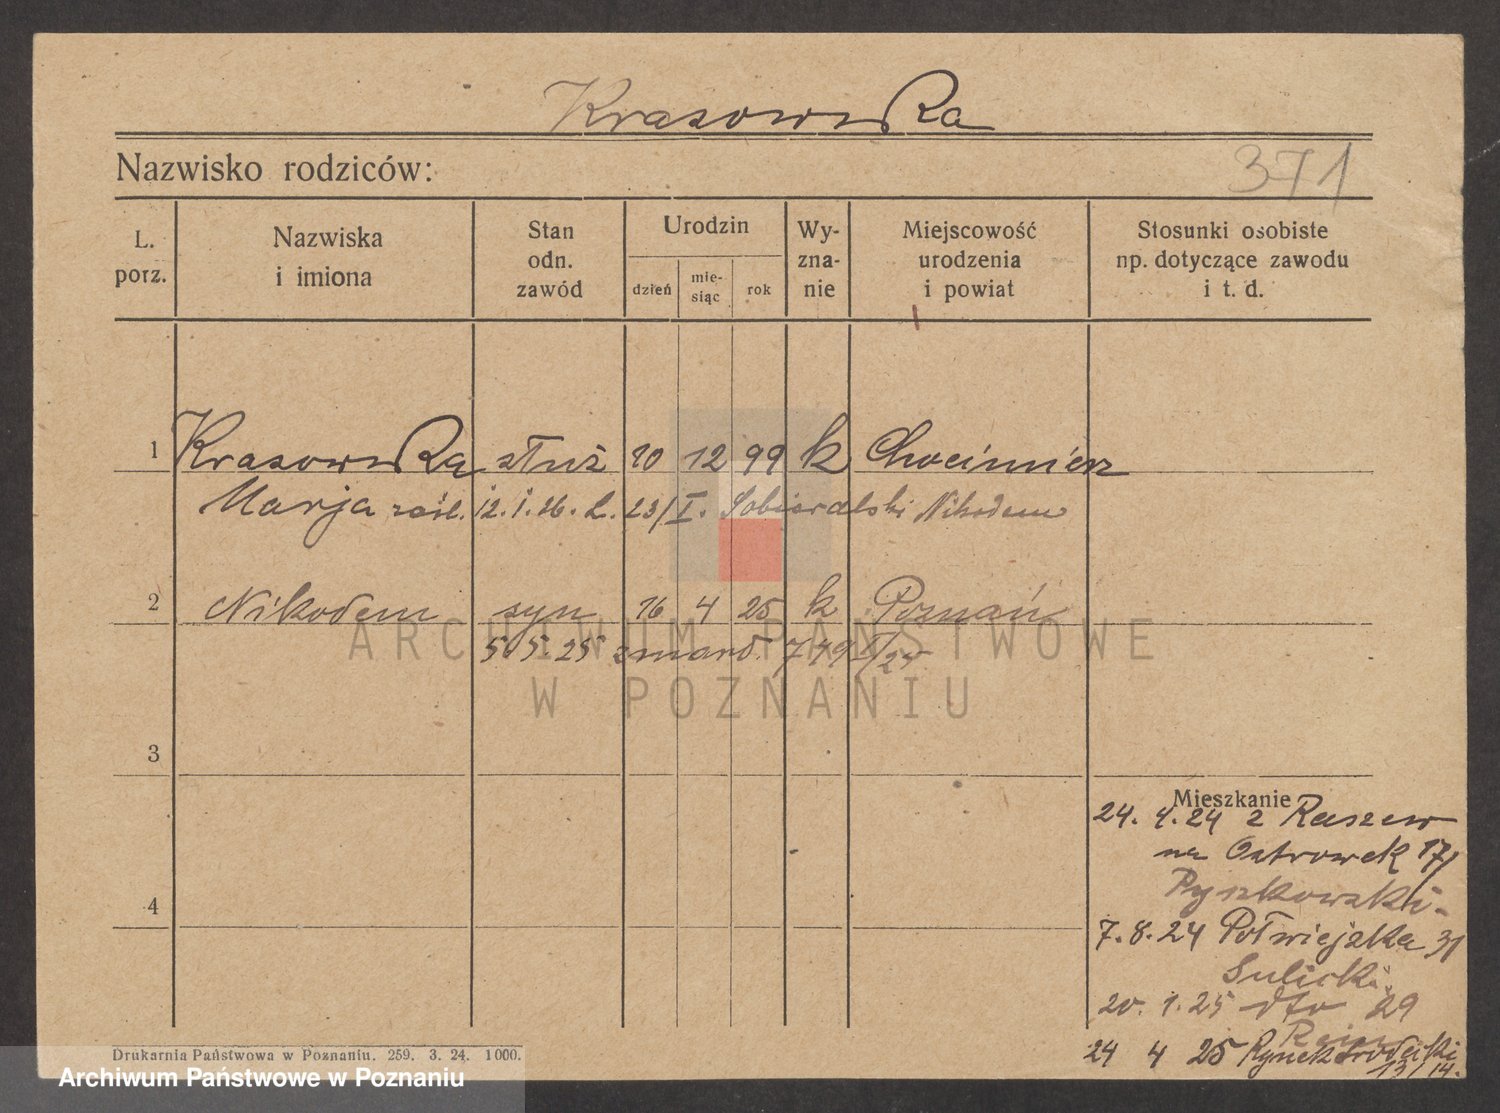 Krasowska
Nazwisko rodziców:
371
L. porz.
Nazwiska i imiona
Stan odn. zawód
Urodzin
dzień
mie-siąc
rok
Wy-zna-nie
Miejscowość urodzenia i powiat
Stosunki osobiste np. dotyczące zawodu i t. d.
1 Krasowska służ 10 12 99 k Chocimierz
Marja zaśl. 12. 1. 26. 23/I. Sobieralski Nikodem
2 Nikodem syn 16 4 25 k Poznań
5 5. 25 zmard. 749
ARCHIWUM PAŃSTWOWE
W POZNANIU
3
Mieszkanie
24. 4. 24 z Raszew
na Ostrowek 17/
Pyszkowski
4
7. 8. 24 Półwiejska 31
Sulicki
20. 1. 25 dto 29
24 4 25 Rynek Śródecki
13/14.
Drukarnia Państwowa w Poznaniu. 259. 3. 24. 1000.
Archiwum Państwowe w Poznaniu